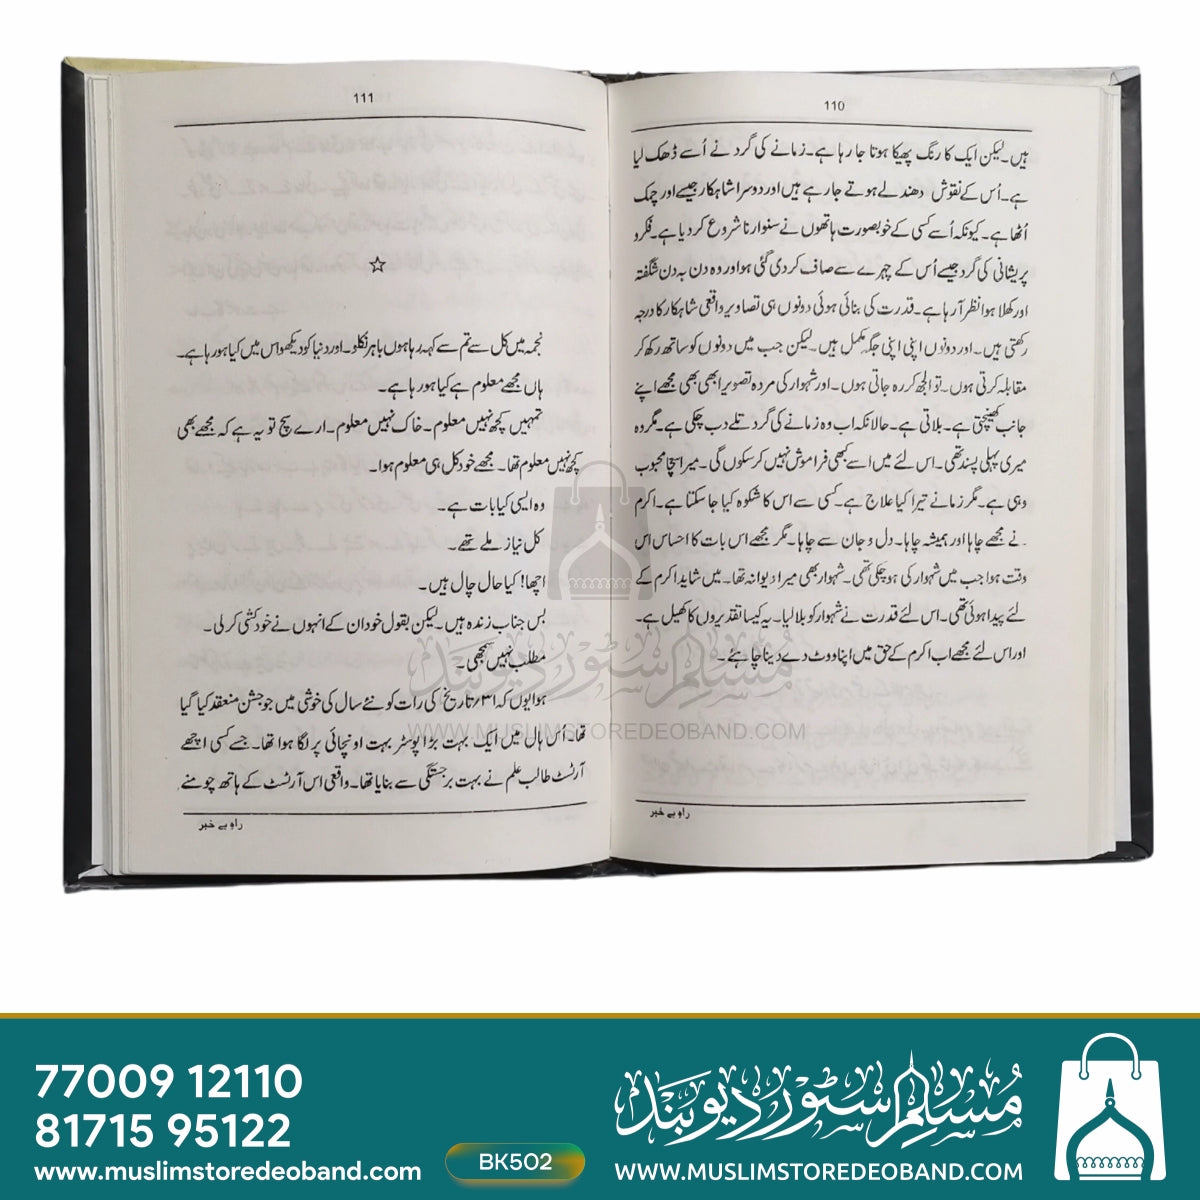 110
ہیں۔ لیکن ایک کا رنگ پھیکا ہوتا جا رہا ہے۔ زمانے کی گرد نے اُسے ڈھک لیا
ہے۔ اُس کے نقوش دھندلے ہوتے جا رہے ہیں اور دوسرا شاہکار جیسے اور چمک
اُٹھا ہے۔ کیونکہ اُسے کسی کے خوبصورت ہاتھوں نے سنوارنا شروع کر دیا ہے۔ فکر و
پریشانی کی گرد جیسے اُس کے چہرے سے صاف کر دی گئی ہو اور وہ دن بہ دن شگفتہ
اور کھلا ہوا نظر آ رہا ہے۔ قدرت کی بنائی ہوئی دونوں ہی تصاویر واقعی شاہکار کا درجہ
رکھتی ہیں۔ اور دونوں اپنی اپنی جگہ مکمل ہیں۔ لیکن جب میں دونوں کو ساتھ رکھ کر
مقابلہ کرتی ہوں۔ تو الجھ کر رہ جاتی ہوں۔ اور شہوار کی مردہ تصویر ابھی بھی مجھے اپنے
جانب کھینچتی ہے۔ بلاتی ہے۔ حالانکہ اب وہ زمانے کی گرد تلے دب چکی ہے۔ مگر وہ
میری پہلی پسند تھی۔ اس لئے میں اسے کبھی فراموش نہیں کر سکوں گی۔ میرا سچا محبوب
وہی ہے۔ مگر زمانے تیرا کیا علاج ہے۔ کسی سے اس کا شکوہ کیا جا سکتا ہے۔ اکرم
نے مجھے چاہا اور ہمیشہ چاہا۔ دل و جان سے چاہا۔ مگر مجھے اس بات کا احساس اس
وقت ہوا جب میں شہوار کی ہو چکی تھی۔ شہوار بھی میرا دیوانہ تھا۔ میں شاید اکرم کے
لئے پیدا ہوئی تھی۔ اس لئے قدرت نے شہوار کو بلا لیا۔ یہ کیسا تقدیروں کا کھیل ہے۔
اور اس لئے مجھے اب اکرم کے حق میں اپنا ووٹ دے دینا چاہئے۔
راہ بے خبر
111
☆
نجمہ میں کل سے تم سے کہہ رہا ہوں باہر نکلو۔ اور دنیا کو دیکھو اس میں کیا ہو رہا ہے۔
ہاں مجھے معلوم ہے کیا ہو رہا ہے۔
تمہیں کچھ نہیں معلوم۔ خاک نہیں معلوم۔ ارے سچ تو یہ ہے کہ مجھے بھی
کچھ نہیں معلوم تھا۔ مجھے خود کل ہی معلوم ہوا۔
وہ ایسی کیا بات ہے۔
کل نیاز ملے تھے۔
اچھا! کیا حال چال ہیں۔
بس جناب زندہ ہیں۔ لیکن بقول خود ان کے انہوں نے خودکشی کر لی۔
مطلب نہیں سمجھی۔
ہوا یوں کہ ۳۱؍ تاریخ کی رات کو نئے سال کی خوشی میں جو جشن منعقد کیا گیا
تھا۔ اُس ہال میں ایک بہت بڑا پوسٹر بہت اونچائی پر لگا ہوا تھا۔ جسے کسی اچھے
آرٹسٹ طالب علم نے بہت برجستگی سے بنایا تھا۔ واقعی اس آرٹسٹ کے ہاتھ چومنے
راہ بے خبر
مُسلم سٹور دیوبند
WWW.MUSLIMSTOREDEOBAND.COM
77009 12110
81715 95122
www.muslimstoredeoband.com
BK502
مُسلم سٹور دیوبند
WWW.MUSLIMSTOREDEOBAND.COM